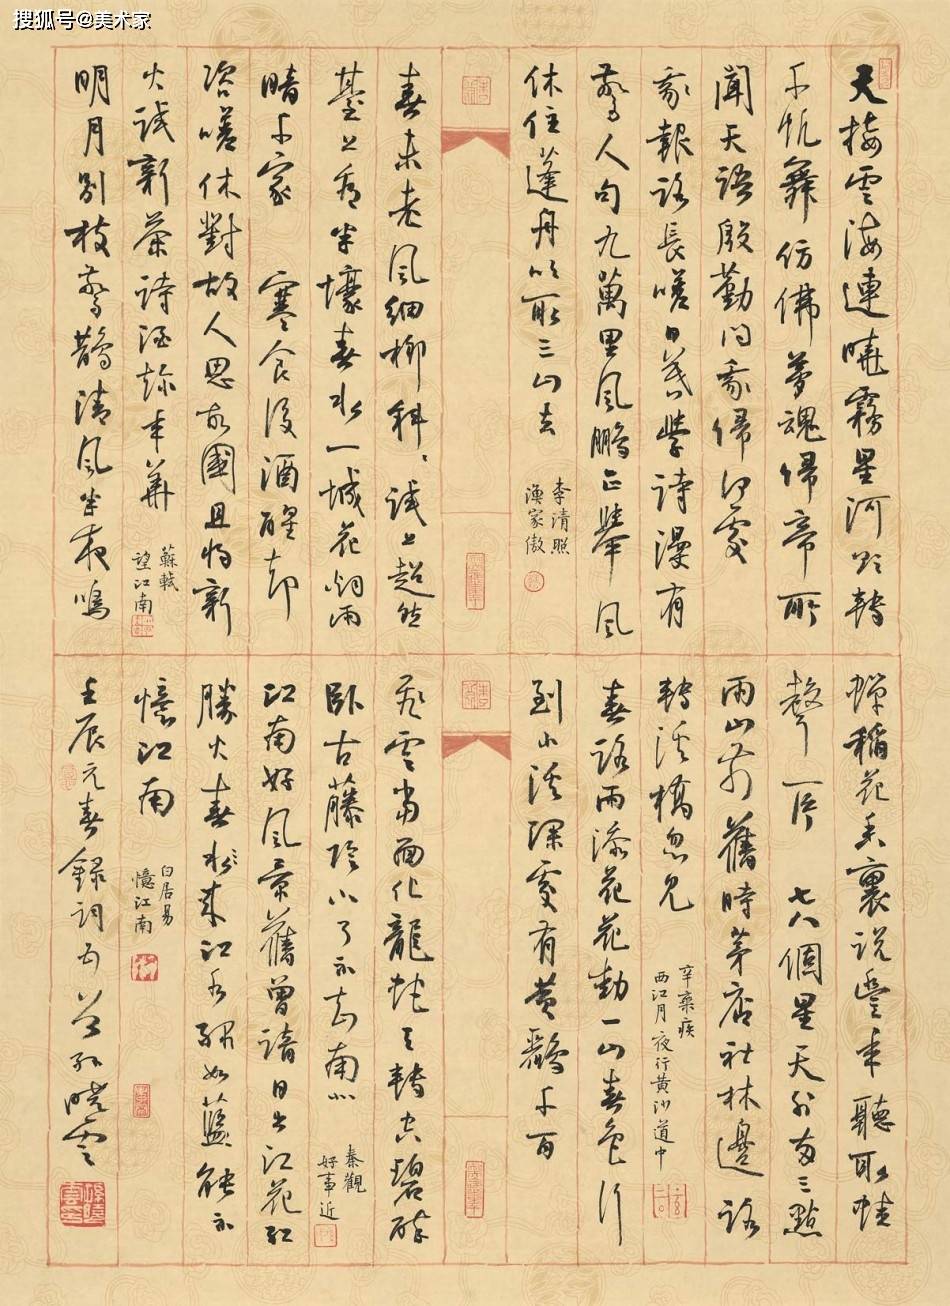 搜狐号@美术家
天接雲海連曉霧星河欲轉
千帆舞仿佛夢魂歸帝所
聞天語殷勤問我歸何處
我報路長嗟日暮學詩漫有
驚人句九萬里風鵬正舉風
休住蓬舟吹取三山去
李清照
漁家傲
春未老風細柳斜斜試上超然
臺上看半壕春水一城花煙雨
暗千家 寒食後酒醒卻
咨嗟休對故人思故國且將新
火試新茶詩酒趁年華
蘇軾
望江南
明月別枝驚鵲清風半夜鳴
蟬稻花香裏說豐年聽取蛙
聲一片 七八個星天外兩三點
雨山前舊時茅店社林邊路
轉溪橋忽見
辛棄疾
西江月夜行黃沙道中
春路雨添花花動一山春色行
到小溪深處有黃鸝千百
飛雲當面化龍蛇夭轉空碧醉
臥古藤陰下了不知南北
秦觀
好事近
江南好風景舊曾諳日出江花紅
勝火春水來江水綠如藍能不
憶江南
白居易
憶江南
壬辰元春錄詞五首孫曉雲